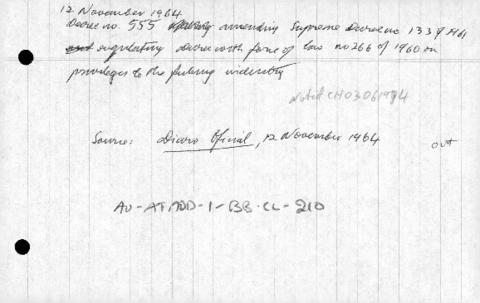 12 November 1964
Decree no. 555 amending Supreme Decree no 1337 1961
and regulating decree with force of law no 266 of 1960 on
privileges to the fishing industry
Noted CH 03061974
Source: Diario Oficial, 12 November 1964
out
AU-ATADD-1-BB-CL-210